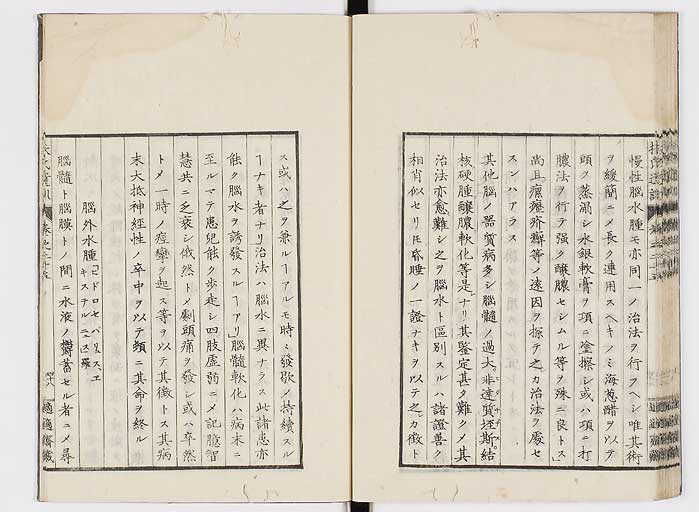 慢性腦水腫モ亦同一ノ治法ヲ行フヘシ唯其術
ヲ緩簡ニ〆長ク連用スヘキノミ海葱醋ヲ以テ
頭ヲ蒸溻シ水銀軟膏ヲ項ニ塗擦シ或ハ項ニ打
膿法ヲ行テ强ク釀膿セシムル等ヲ殊ニ良トス
尚且瘰癧疥癬等ノ遠因ヲ探テ之カ治法ヲ處セ
スンハアラス
其他腦ノ器質病多シ腦髓ノ過大、非達質坯斯、結
核硬腫釀膿軟化等是ナリ其鑒定甚タ難ク〆其
治法亦愈難シ之ヲ腦水ト區別スルハ諸證善ク
相肖似セリ𪜈昏睡ノ一證ナキヲ以テ之カ徴ト
ス或ハ之ヲ兼ルヿアルモ時々發歇〆持續スル
ヿナキ者ナリ治法ハ腦水ニ異ナラス此諸患亦
能ク腦水ヲ誘發スルヿアリ腦髓軟化ハ病末ニ
至ルマテ患兒能ク步走シ四肢虛弱ニ〆記臆智
慧共ニ乏衰シ俄然ト〆劇頭痛ヲ發シ或ハ卒然
ト〆一時ノ痙攣ヲ起ス等ヲ以テ其徴トス其病
末大抵神經性ノ卒中ヲ以テ頓ニ其命ヲ終ル
腦外水腫
腦髓ト腦膜トノ間ニ水液ノ欝蓄セル者ニ〆尋
適適齋藏